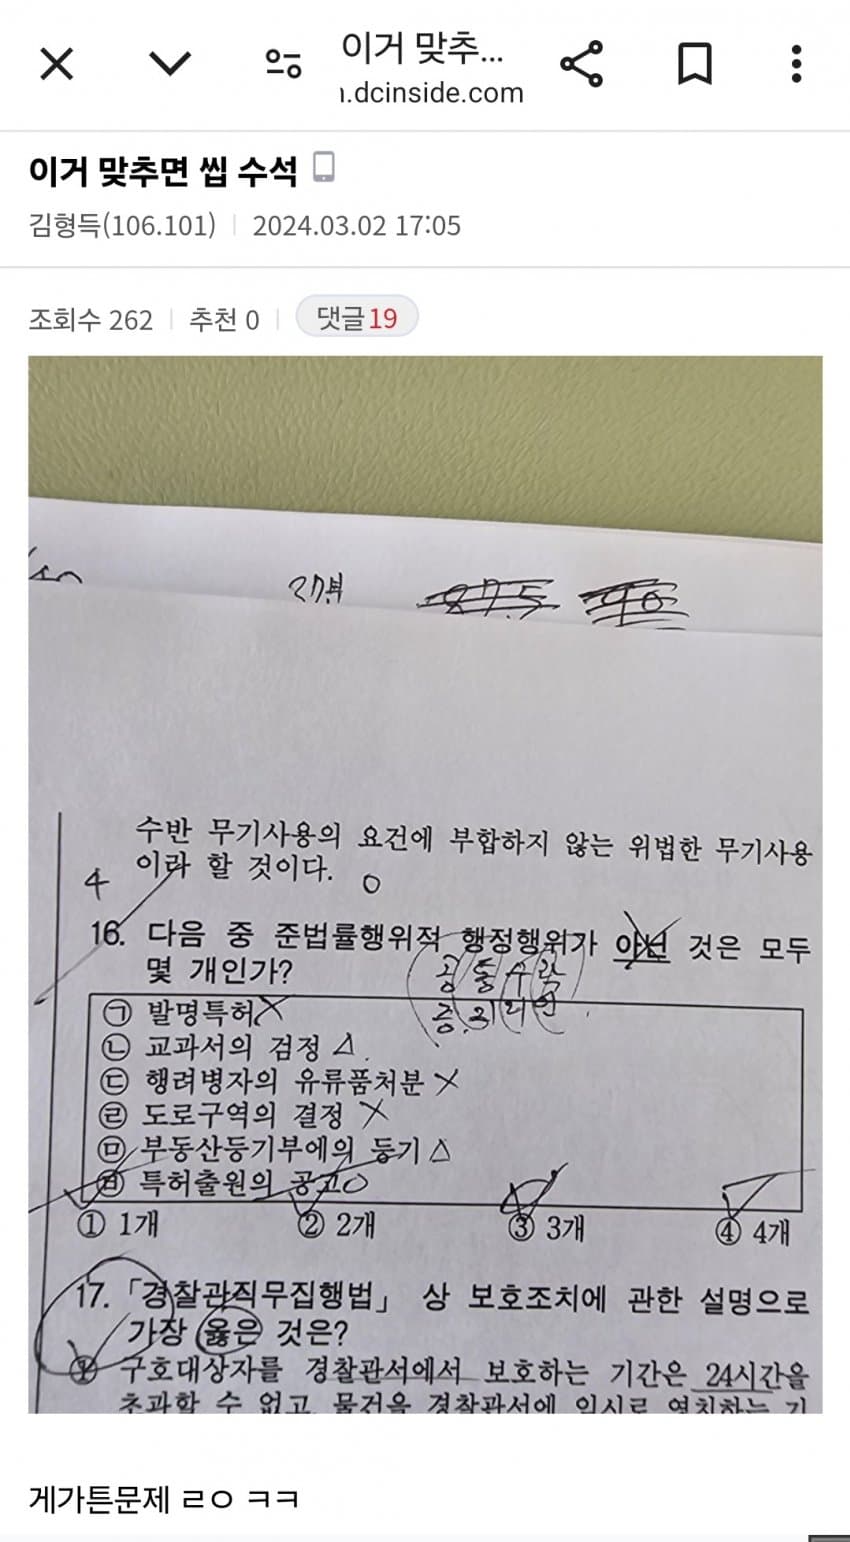 이거 맞추...
ı.dcinside.com
이거 맞추면 씹 수석
김형득(106.101) 2024.03.02 17:05
조회수 262 추천 0 댓글 19
27분
수반 무기사용의 요건에 부합하지 않는 위법한 무기사용
이라 할 것이다. O
4
16. 다음 중 준법률행위적 행정행위가 아닌 것은 모두
몇 개인가?
공 통 수 확
증 리
㉠ 발명특허 X
㉡ 교과서의 검정 △.
㉢ 행려병자의 유류품처분 X
㉣ 도로구역의 결정 X
㉤ 부동산등기부에의 등기 △
㉥ 특허출원의 공고 O
① 1개 ② 2개 ③ 3개 ④ 4개
17. 「경찰관직무집행법」 상 보호조치에 관한 설명으로
가장 옳은 것은?
① 구호대상자를 경찰관서에서 보호하는 기간은 24시간을
초과할 수 없고 물건을 경찰관서에 임시로 영치하는 기
게가튼문제 ㄹㅇ ㅋㅋ